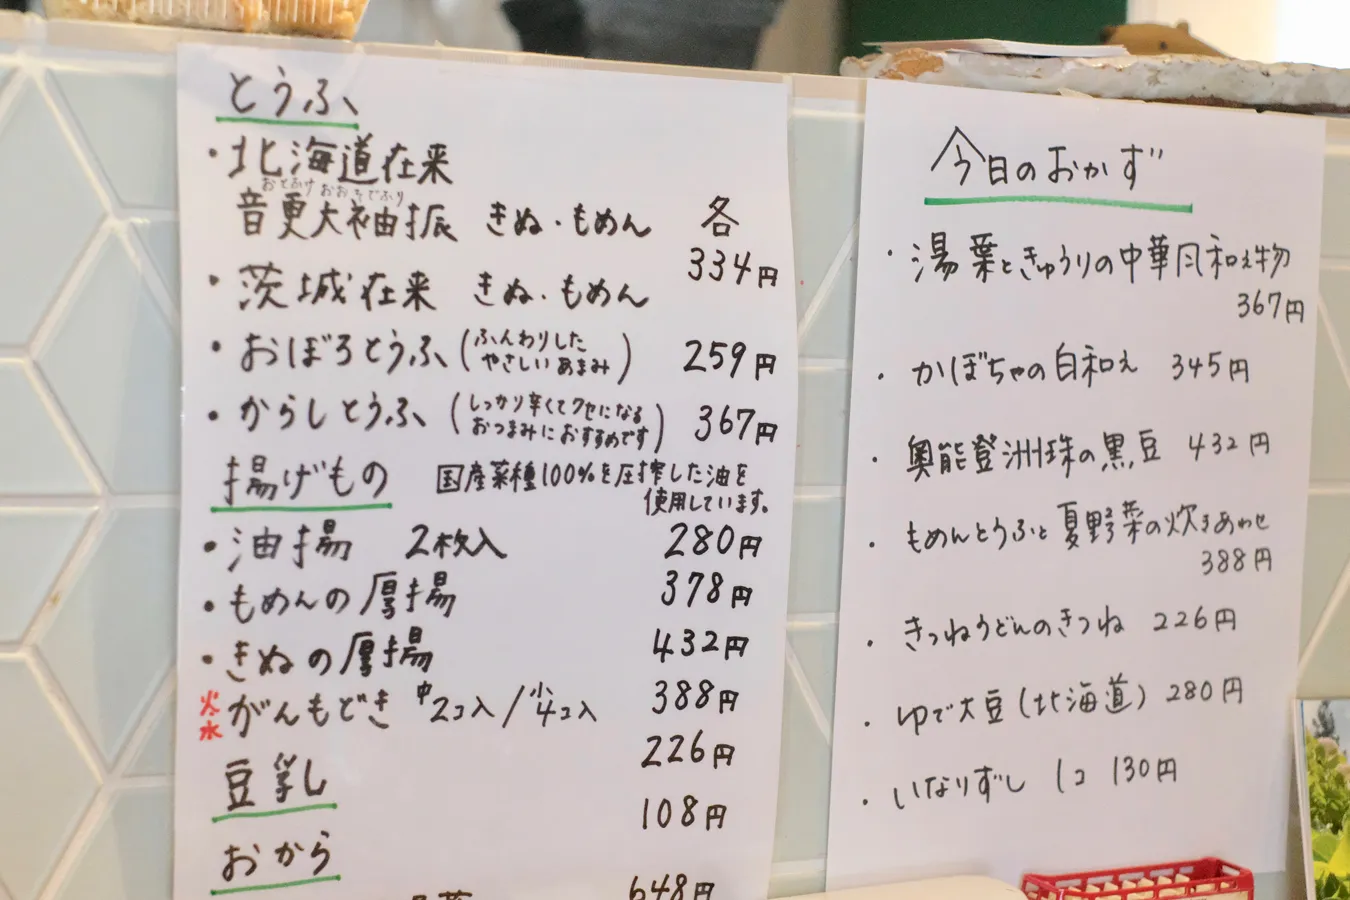 とうふ
・北海道在来
おとふけ おおそでふり
音更大袖振 きぬ・もめん 各
334円
・茨城在来 きぬ・もめん
・おぼろとうふ (ふんわりした
やさしいあまみ) 259円
・からしとうふ (しっかり辛くてクセになる
おつまみにおすすめです) 367円
揚げもの 国産菜種100%を圧搾した油を
使用しています。
・油揚 2枚入 280円
・もめんの厚揚 378円
・きぬの厚揚 432円
火水 がんもどき 中2コ入/小4コ入 388円
豆乳 226円
108円
おから
648円
今日のおかず
・湯葉ときゅうりの中華風和え物
367円
・かぼちゃの白和え 345円
・奥能登洲珠の黒豆 432円
・もめんとうふと夏野菜の炊きあわせ
388円
・きつねうどんのきつね 226円
・ゆで大豆(北海道) 280円
・いなりずし 1コ 130円